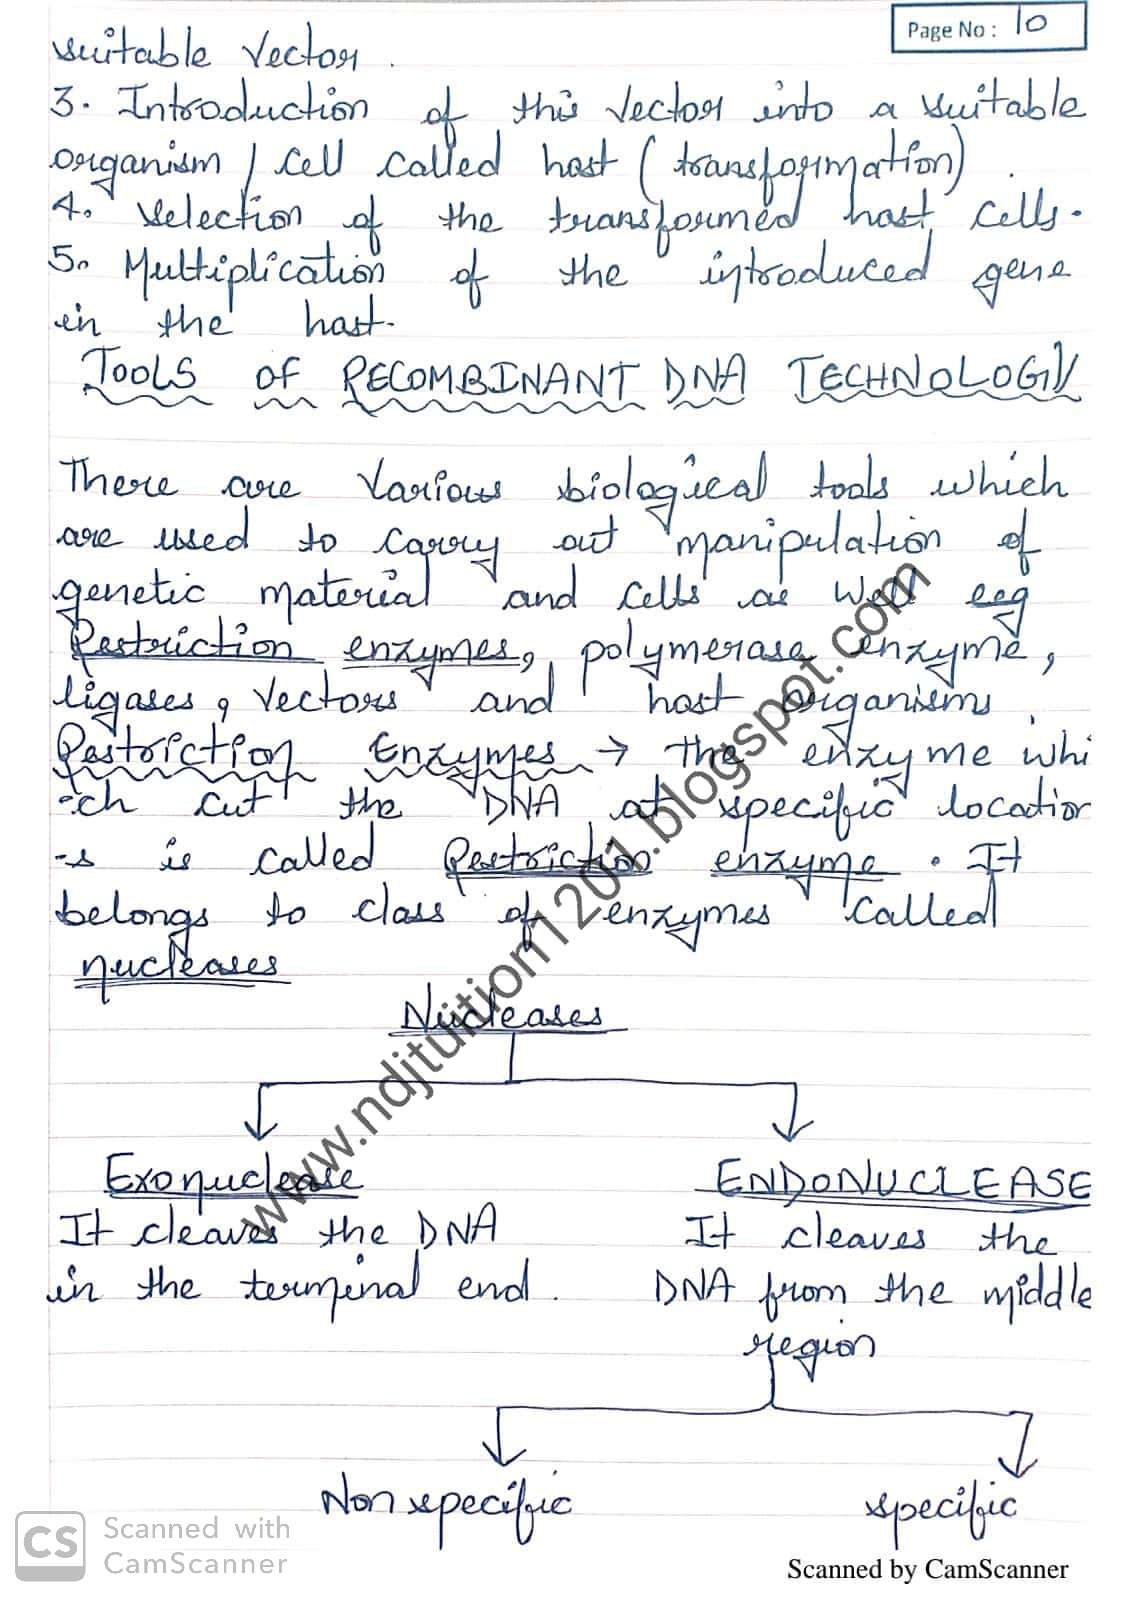 Page No : 10
suitable vector.
3. Introduction of this vector into a suitable
organism / cell called host (transformation).
4. Selection of the transformed host cells.
5. Multiplication of the introduced gene
in the host.
TOOLS OF RECOMBINANT DNA TECHNOLOGY
There are various biological tools which
are used to carry out manipulation of
genetic material and cells as well eg
Restriction enzymes, polymerase enzyme,
ligases, vectors and host organisms.
Restriction Enzymes → The enzyme whi
-ch cut the DNA at specific location
-s is called Restriction enzyme. It
belongs to class of enzymes called
nucleases
Nucleases
Exonuclease ENDONUCLEASE
It cleaves the DNA It cleaves the
in the terminal end. DNA from the middle
region
Non specific specific
www.ndjtuition1201.blogspot.com
CS Scanned with
CamScanner
Scanned by CamScanner